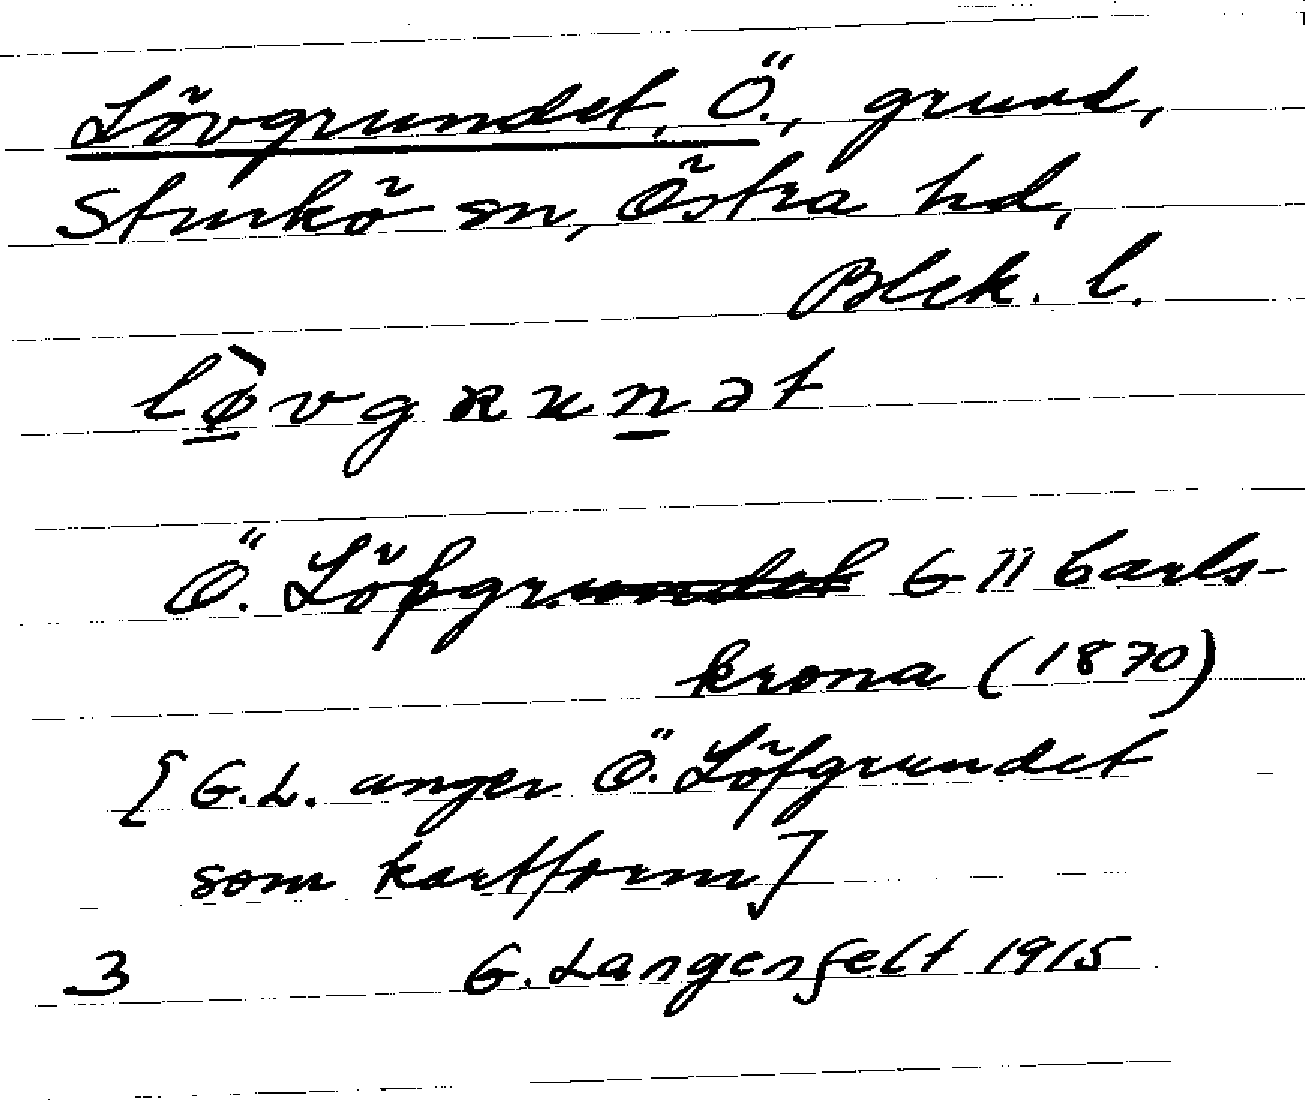 Lövgrundet, Ö., grund,
Sturkö sn, Östra hd,
Blek. l.
lø̀vgrunət
Ö. Löfgr. G II Carls-
krona (1870)
[G.L. anger Ö. Löfgrundet
som kartform]
3 G. Langenfelt 1915